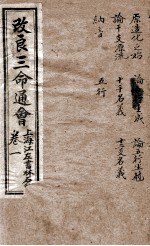 改良三命通會
卷一
上海江左書林石印
原造化之始
論五行生成
論干支源流
十干名義
十二支名義
納音
五行